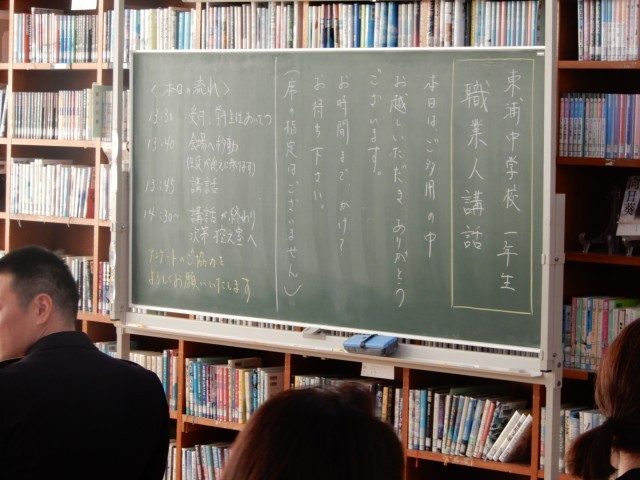 東浦中学校 一年生
職業人講話
本日はご多用の中
お越しいただき ありがとう
ございます。
お時間まで、かけて
お待ち下さい。
(席の指定はございません)
〈本日の流れ〉
13:30
13:40 会場へ移動
13:45 講話
14:30~ 講話が終わり
次第 控え室へ
アンケートのご協力を
よろしくお願いいたします